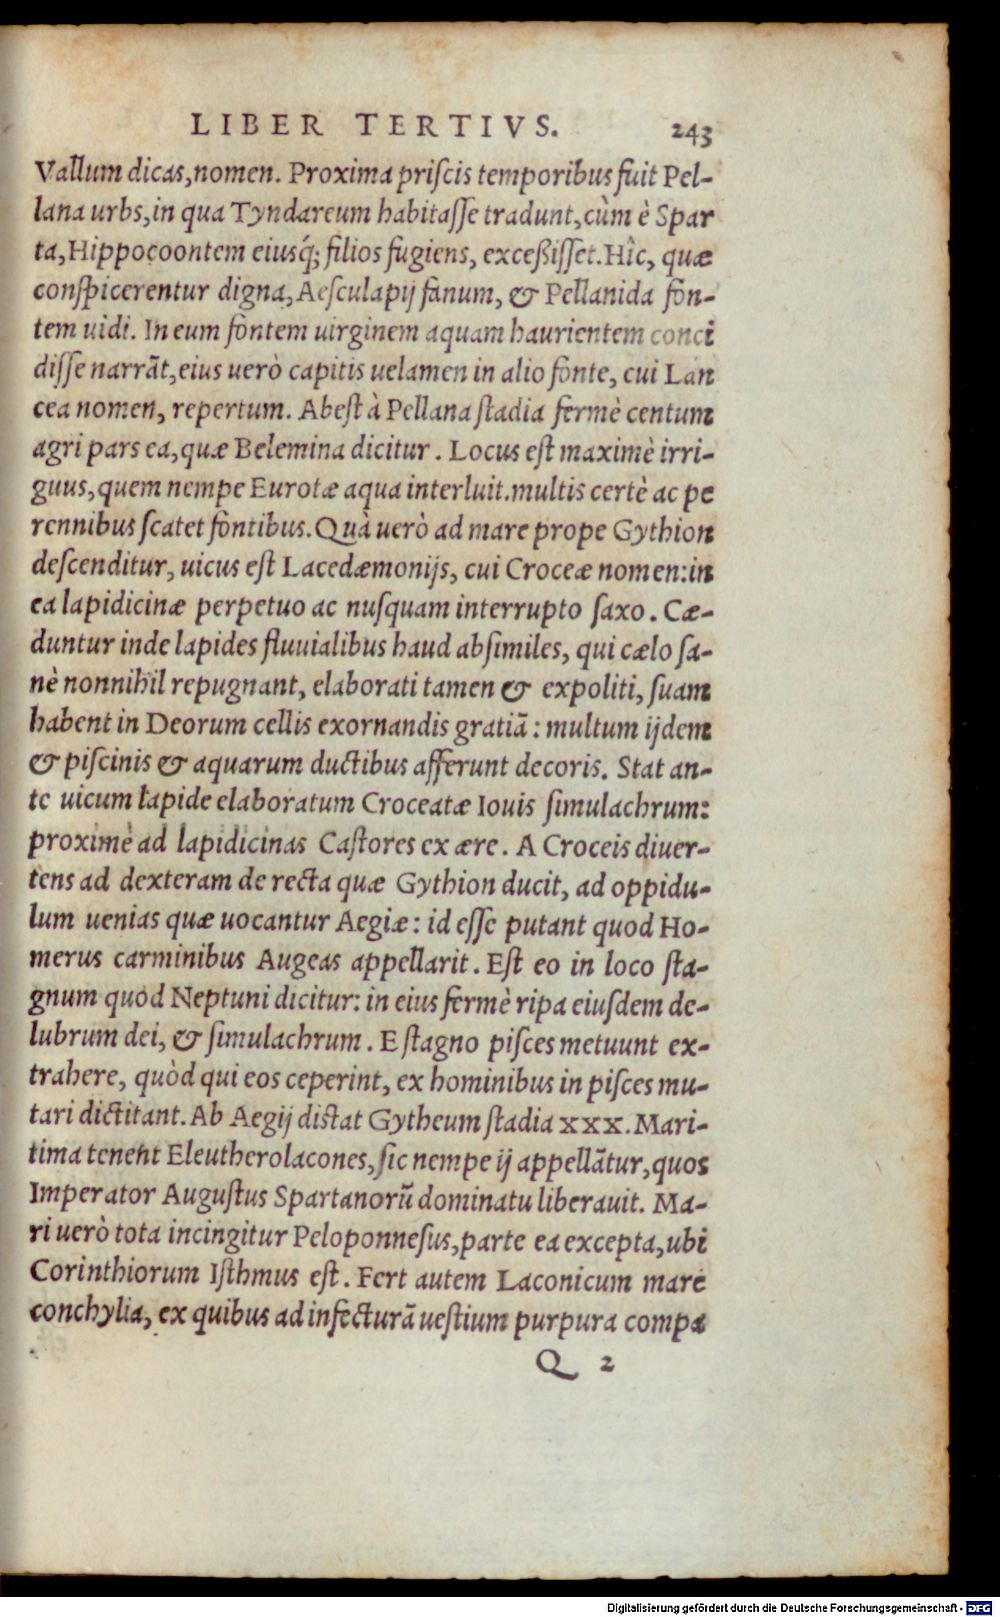 LIBER TERTIVS. 243
Vallum dicas, nomen. Proxima priſcis temporibus fuit Pel-
lana urbs, in qua Tyndareum habitaſſe tradunt, cùm è Spar
ta, Hippocoontem eiusq́; filios fugiens, exceßiſſet. Hîc, quæ
conſpicerentur digna, Aeſculapij fanum, & Pellanida fon-
tem uidi. In eum fontem uirginem aquam haurientem conci
diſſe narrãt, eius uerò capitis uelamen in alio fonte, cui Lan
cea nomen, repertum. Abeſt à Pellana ſtadia fermè centum
agri pars ea, quæ Belemina dicitur. Locus eſt maximè irri-
guus, quem nempe Eurotæ aqua interluit. multis certè ac pe
rennibus ſcatet fontibus. Quà uerò ad mare prope Gythion
deſcenditur, uicus eſt Lacedæmonijs, cui Croceæ nomen: in
ea lapidicinæ perpetuo ac nuſquam interrupto ſaxo. Cæ-
duntur inde lapides fluuialibus haud abſimiles, qui cælo ſa-
nè nonnihil repugnant, elaborati tamen & expoliti, ſuam
habent in Deorum cellis exornandis gratiã: multum ijdem
& piſcinis & aquarum ductibus afferunt decoris. Stat an-
te uicum lapide elaboratum Croceatæ Iouis ſimulachrum:
proximè ad lapidicinas Caſtores ex ære. A Croceis diuer-
tens ad dexteram de recta quæ Gythion ducit, ad oppidu-
lum uenias quæ uocantur Aegiæ: id eſſe putant quod Ho-
merus carminibus Augeas appellarit. Eſt eo in loco ſta-
gnum quod Neptuni dicitur: in eius fermè ripa eiuſdem de-
lubrum dei, & ſimulachrum. E ſtagno piſces metuunt ex-
trahere, quòd qui eos ceperint, ex hominibus in piſces mu-
tari dictitant. Ab Aegij diſtat Gytheum ſtadia XXX. Mari-
tima tenent Eleutherolacones, ſic nempe ij appellãtur, quos
Imperator Auguſtus Spartanorũ dominatu liberauit. Ma-
ri uerò tota incingitur Peloponneſus, parte ea excepta, ubi
Corinthiorum Iſthmus eſt. Fert autem Laconicum mare
conchylia, ex quibus ad infecturã ueſtium purpura compa
Q 2
Digitalisierung gefördert durch die Deutsche Forschungsgemeinschaft - DFG